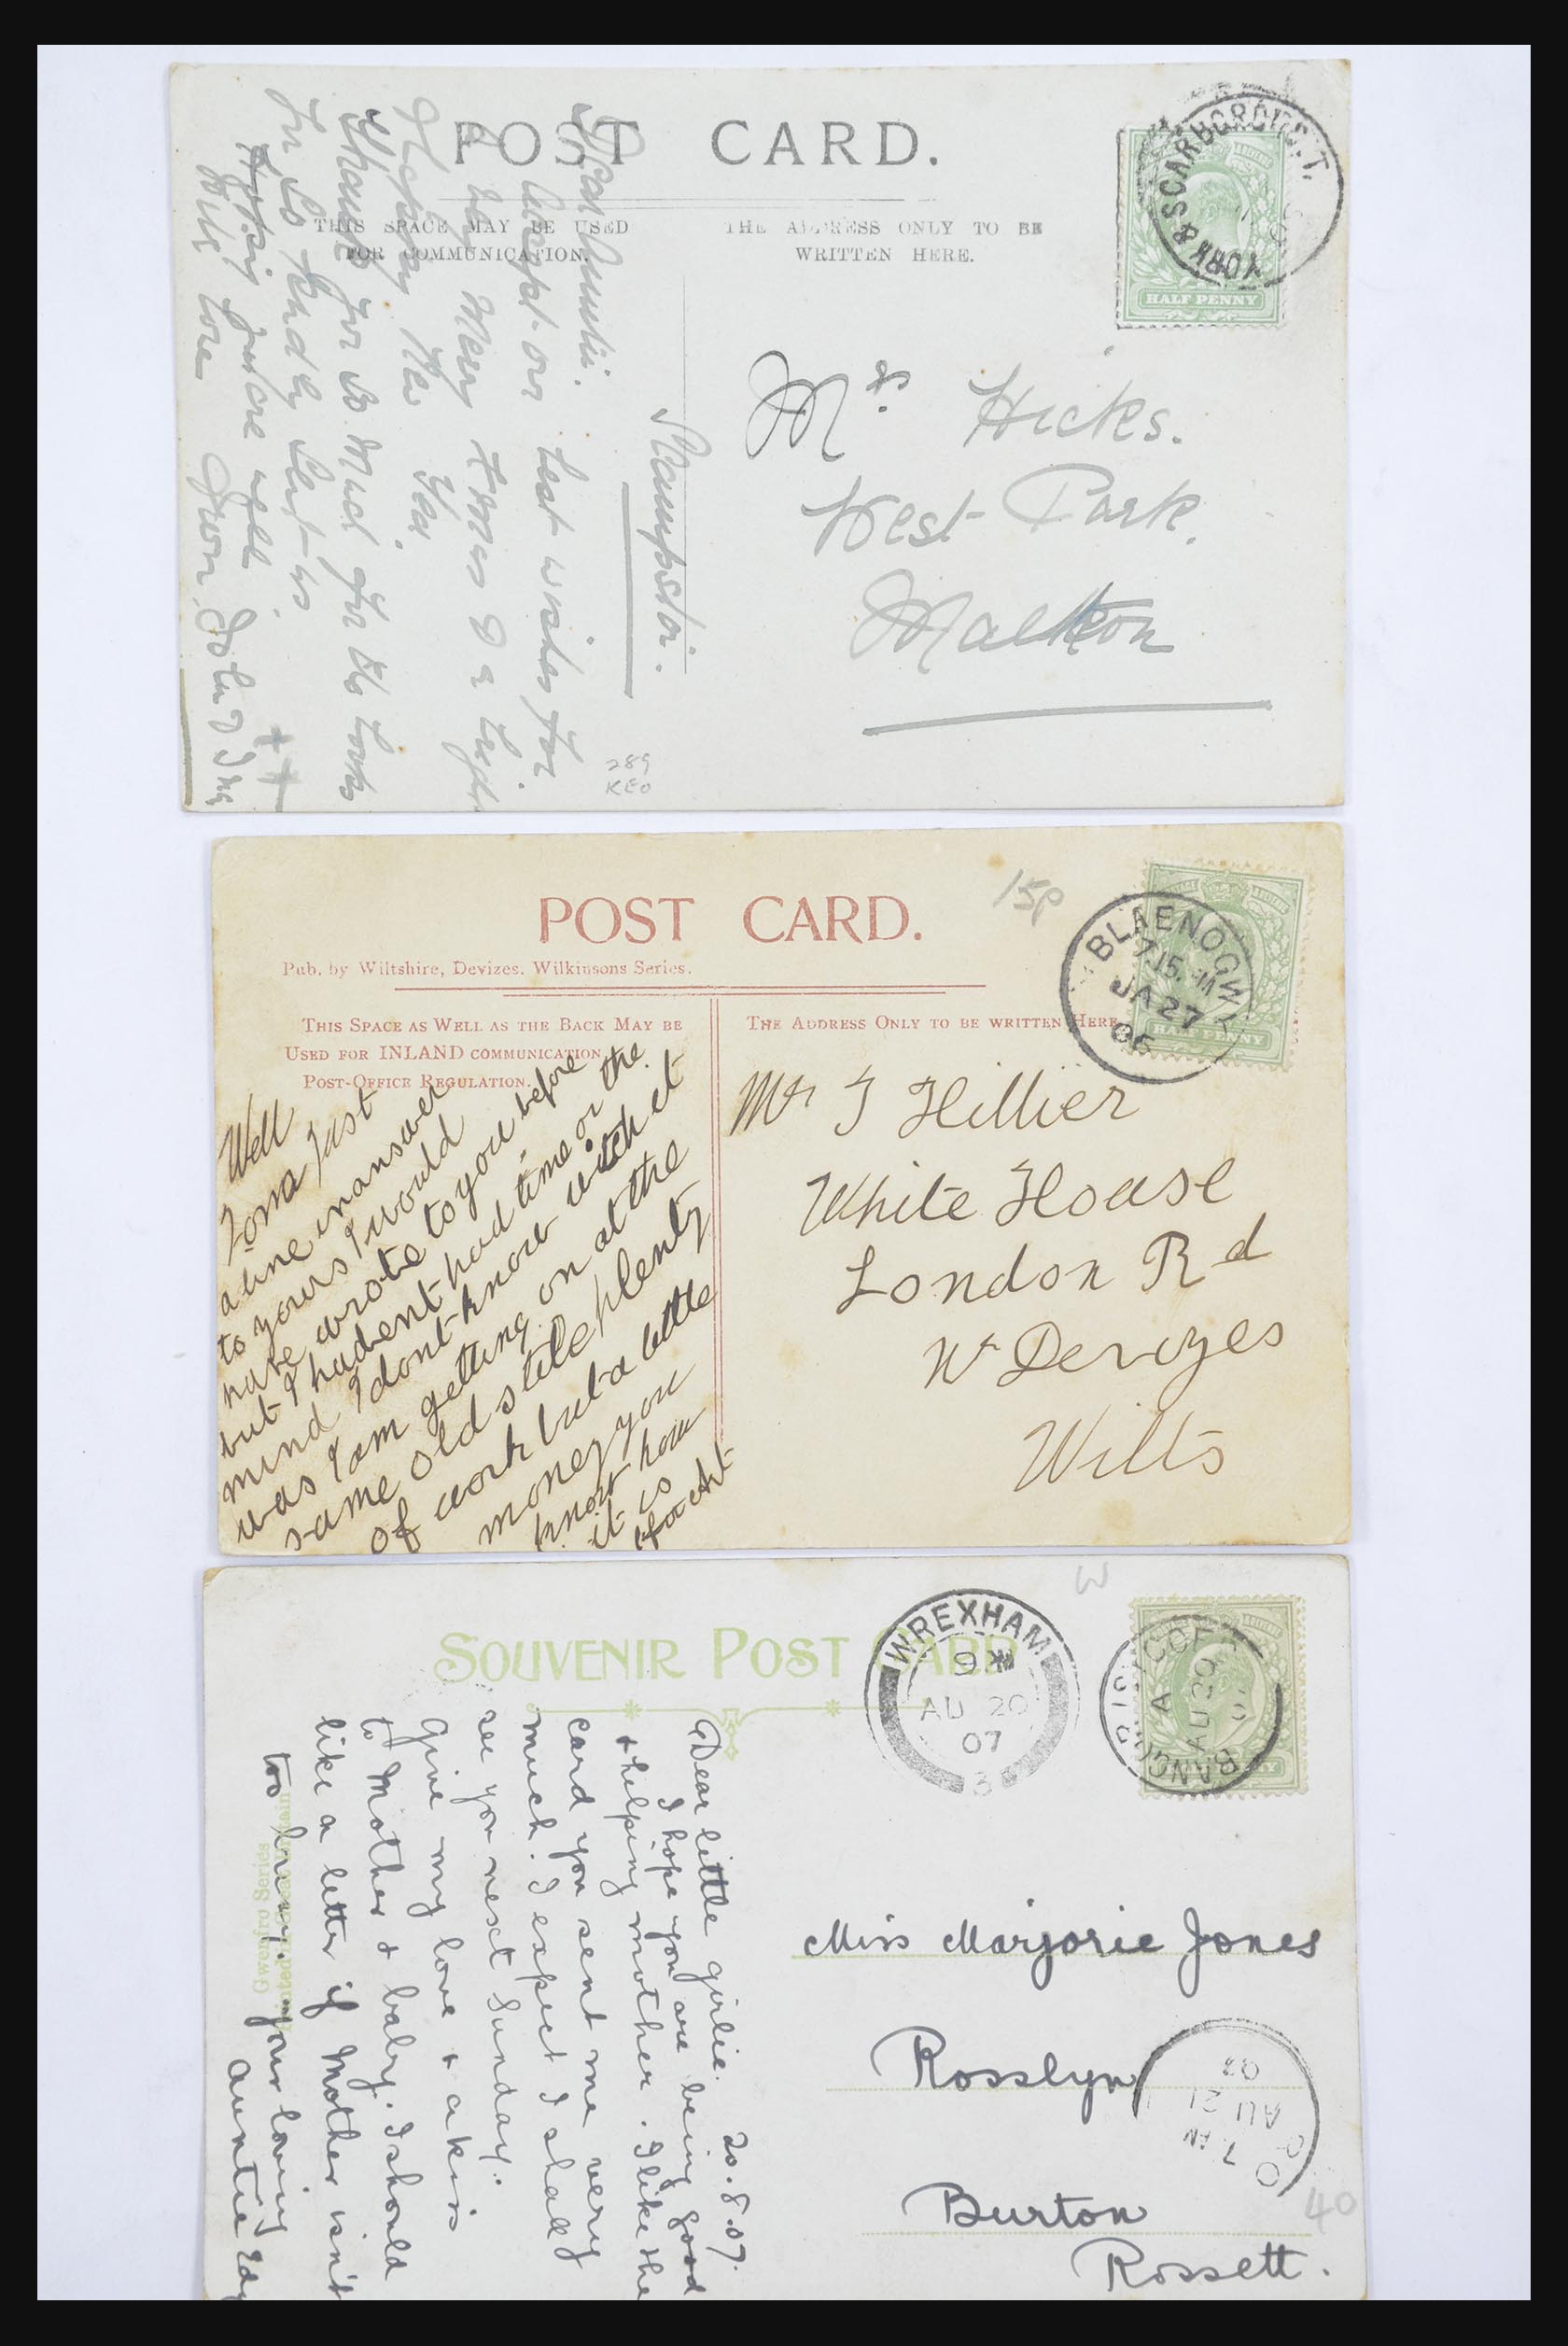 POST CARD.
THIS SPACE MAY BE USED
FOR COMMUNICATION.
THE ADDRESS ONLY TO BE
WRITTEN HERE.
YORK & SCARBOROUGH T.
HALF PENNY
Mrs. Hicks.
West Park.
Malton
Scampston.
accept our best wishes for
a very
Happy New Year.
Thanks for so much for the books
kindly sent us
289
KEO
POST CARD.
15p
Pub. by Wiltshire, Devizes. Wilkinsons Series.
THIS SPACE AS WELL AS THE BACK MAY BE
USED FOR INLAND COMMUNICATION
POST-OFFICE REGULATION.
THE ADDRESS ONLY TO BE WRITTEN HERE
BLAENOGW
7.15
JA 27
06
HALF PENNY
Mr J Hillier
White House
London Rd
Nr Devizes
Wilts
Well
just
a line in answer
to yours I would
have wrote to you before
but I hadent had time or the
mind I dont know witch it
was I am getting on at the
same old stile plenty
of work but a little
money you
know how
it is
SOUVENIR POST CARD
WREXHAM
9
AU 20
07
3
BANGOR-IS-Y-COED
A
AU 20
W
Miss Marjorie Jones
Rosslyn
Burton
Rossett.
7 AM
AU 21
07
40
20.8.07.
Dear little girlie.
I hope you are being good
& helping mother. I like the
card you sent me very
much. I expect I shall
see you next Sunday.
Give my love & a kiss
to Mother & baby. I should
like a letter if Mother isn't
too busy. your loving
Auntie Edy
Gwenfro Series